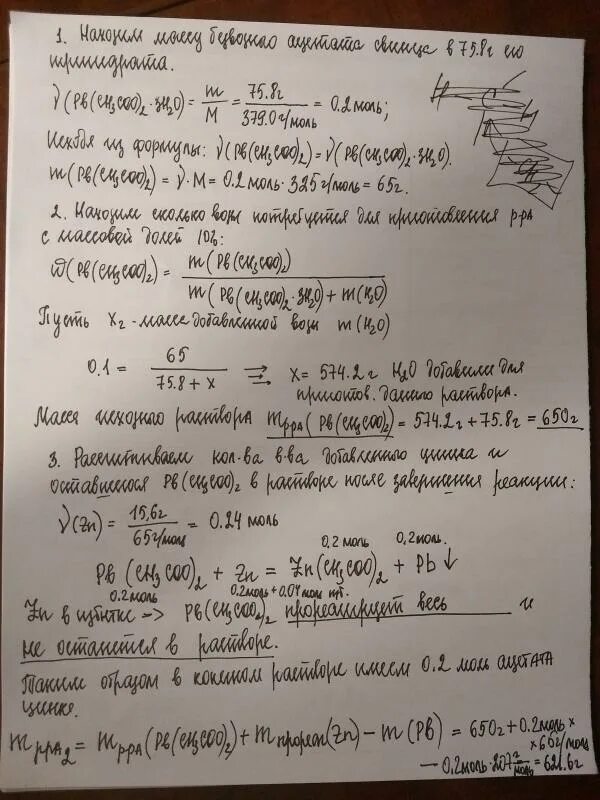 1. Находим массу безводного ацетата свинца в 75.8г его
тригидрата.
ν(Pb(CH3COO)2·3H2O) = m/M = 75.8г/379.0г/моль = 0.2моль;
Исходя из формулы: ν(Pb(CH3COO)2) = ν(Pb(CH3COO)2·3H2O).
m(Pb(CH3COO)2) = ν·M = 0.2моль·325г/моль = 65г.
2. Находим сколько воды потребуется для приготовления р-ра
с массовой долей 10%:
ω(Pb(CH3COO)2) = m(Pb(CH3COO)2) / m(Pb(CH3COO)2·3H2O) + m(H2O)
Пусть Xг - масса добавленной воды m(H2O)
0.1 = 65 / 75.8 + x ⇒ X = 574.2г H2O добавили для
приготов. данного раствора.
Масса исходного раствора mрра(Pb(CH3COO)2) = 574.2г + 75.8г = 650г
3. Рассчитываем кол-ва в-ва добавленного цинка и
оставшегося Pb(CH3COO)2 в растворе после завершения реакции:
ν(Zn) = 15,6г/65г/моль = 0.24 моль
0,2 моль 0,2моль.
Pb(CH3COO)2 + Zn = Zn(CH3COO)2 + Pb↓
0.2моль 0.2моль + 0.04моль изб.
Zn в избытке -> Pb(CH3COO)2 прореагирует весь и
не останется в растворе.
Таким образом в конечном растворе имеем 0.2 моль ацетата
цинка.
mрра2 = mрра(Pb(CH3COO)2) + mпрореаг(Zn) - m(Pb) = 650г + 0.2моль×
×65г/моль
- 0,2моль·207г/моль = 621.6г